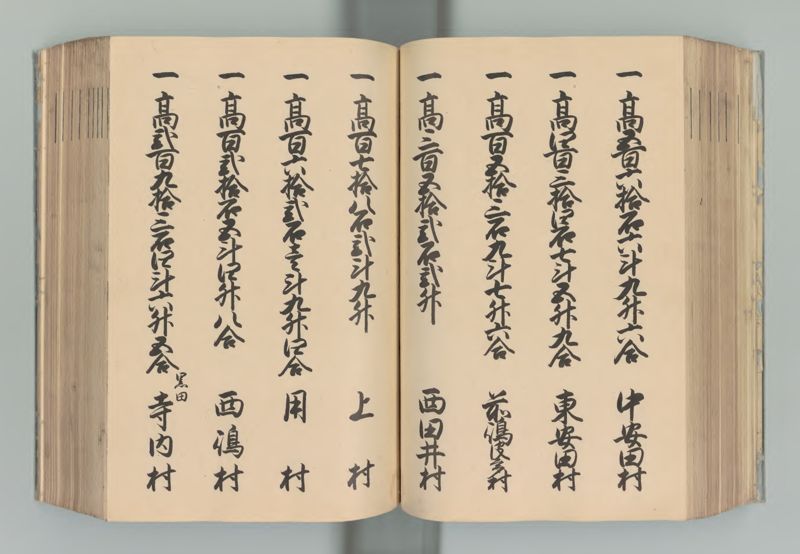 一 高五百六拾石六斗九升六合 中安田村
一 高四百三拾四石七斗五升九合 東安田村
一 高百五拾三石九斗七升六合 前嶋村
一 高三百五拾弐石弐升 西田井村
一 高百七拾八石弐斗九升 上村
一 高百六拾弐石壱斗九升四合 用村
一 高百弐拾石五斗四升八合 西嶋村
一 高弐百九拾三石四斗六升五合 黒田 寺内村